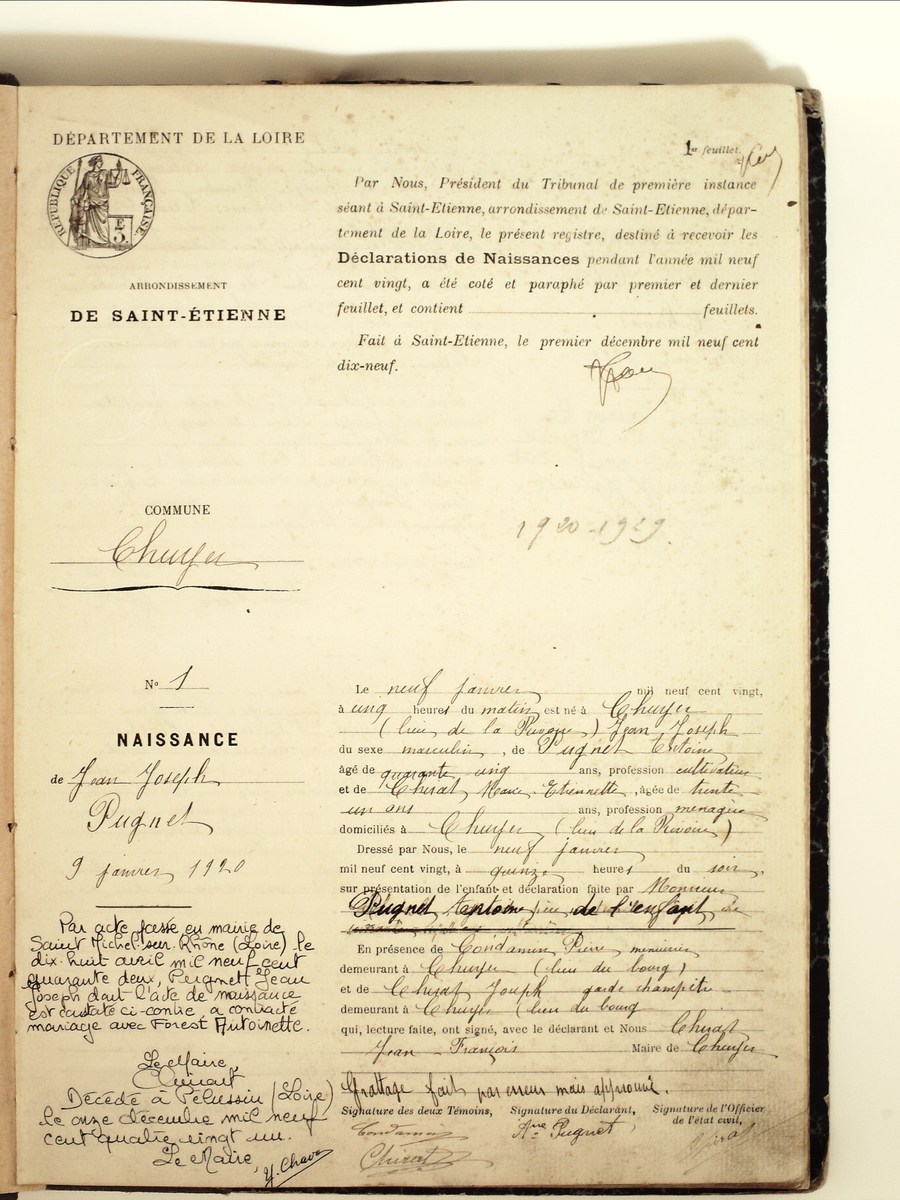 DÉPARTEMENT DE LA LOIRE
RÉPUBLIQUE FRANÇAISE
E
3
ARRONDISSEMENT
DE SAINT-ÉTIENNE
1er feuillet.
Par Nous, Président du Tribunal de première instance
séant à Saint-Etienne, arrondissement de Saint-Etienne, dépar-
tement de la Loire, le présent registre, destiné à recevoir les
Déclarations de Naissances pendant l'année mil neuf
cent vingt, a été coté et paraphé par premier et dernier
feuillet, et contient feuillets.
Fait à Saint-Etienne, le premier décembre mil neuf cent
dix-neuf.
COMMUNE
Chuyer
1920-1929.
No 1
NAISSANCE
de Jean Joseph
Pugnet
9 janvier 1920
Par acte passé en mairie de
Saint Michel-sur-Rhône (Loire) le
dix-huit avril mil neuf cent
quarante deux, Peignet Jean
Joseph dont l'acte de naissance
est constaté ci-contre, a contracté
mariage avec Forest Antoinette.
Le Maire,
Chirat
Décédé à Pélussin (Loire)
le onze décembre mil neuf
cent quatre vingt un.
Le Maire,
Y. Chave
Le neuf janvier mil neuf cent vingt,
à cinq heures du matin est né à Chuyer
(lieu de la ) Jean Joseph
du sexe masculin, de Pugnet Antoine
âgé de quarante cinq ans, profession cultivateur
et de Chirat Marie Etiennette, âgée de trente
un ans ans, profession ménagère
domiciliés à Chuyer (lieu de la Rivoire)
Dressé par Nous, le neuf janvier
mil neuf cent vingt, à quinze heures du soir,
sur présentation de l'enfant et déclaration faite par Monsieur
Pugnet Antoine père de l'enfant
En présence de Condamin Pierre menuisier
demeurant à Chuyer (lieu du bourg)
et de Chirat Joseph garde champêtre
demeurant à Chuyer (lieu du bourg
qui, lecture faite, ont signé, avec le déclarant et Nous Chirat
Jean-François Maire de Chuyer
Grattage fait par erreur mais approuvé.
Signature des deux Témoins, Signature du Déclarant, Signature de l'Officier de l'état civil,
Condamin Ane Pugnet
Chirat Chirat